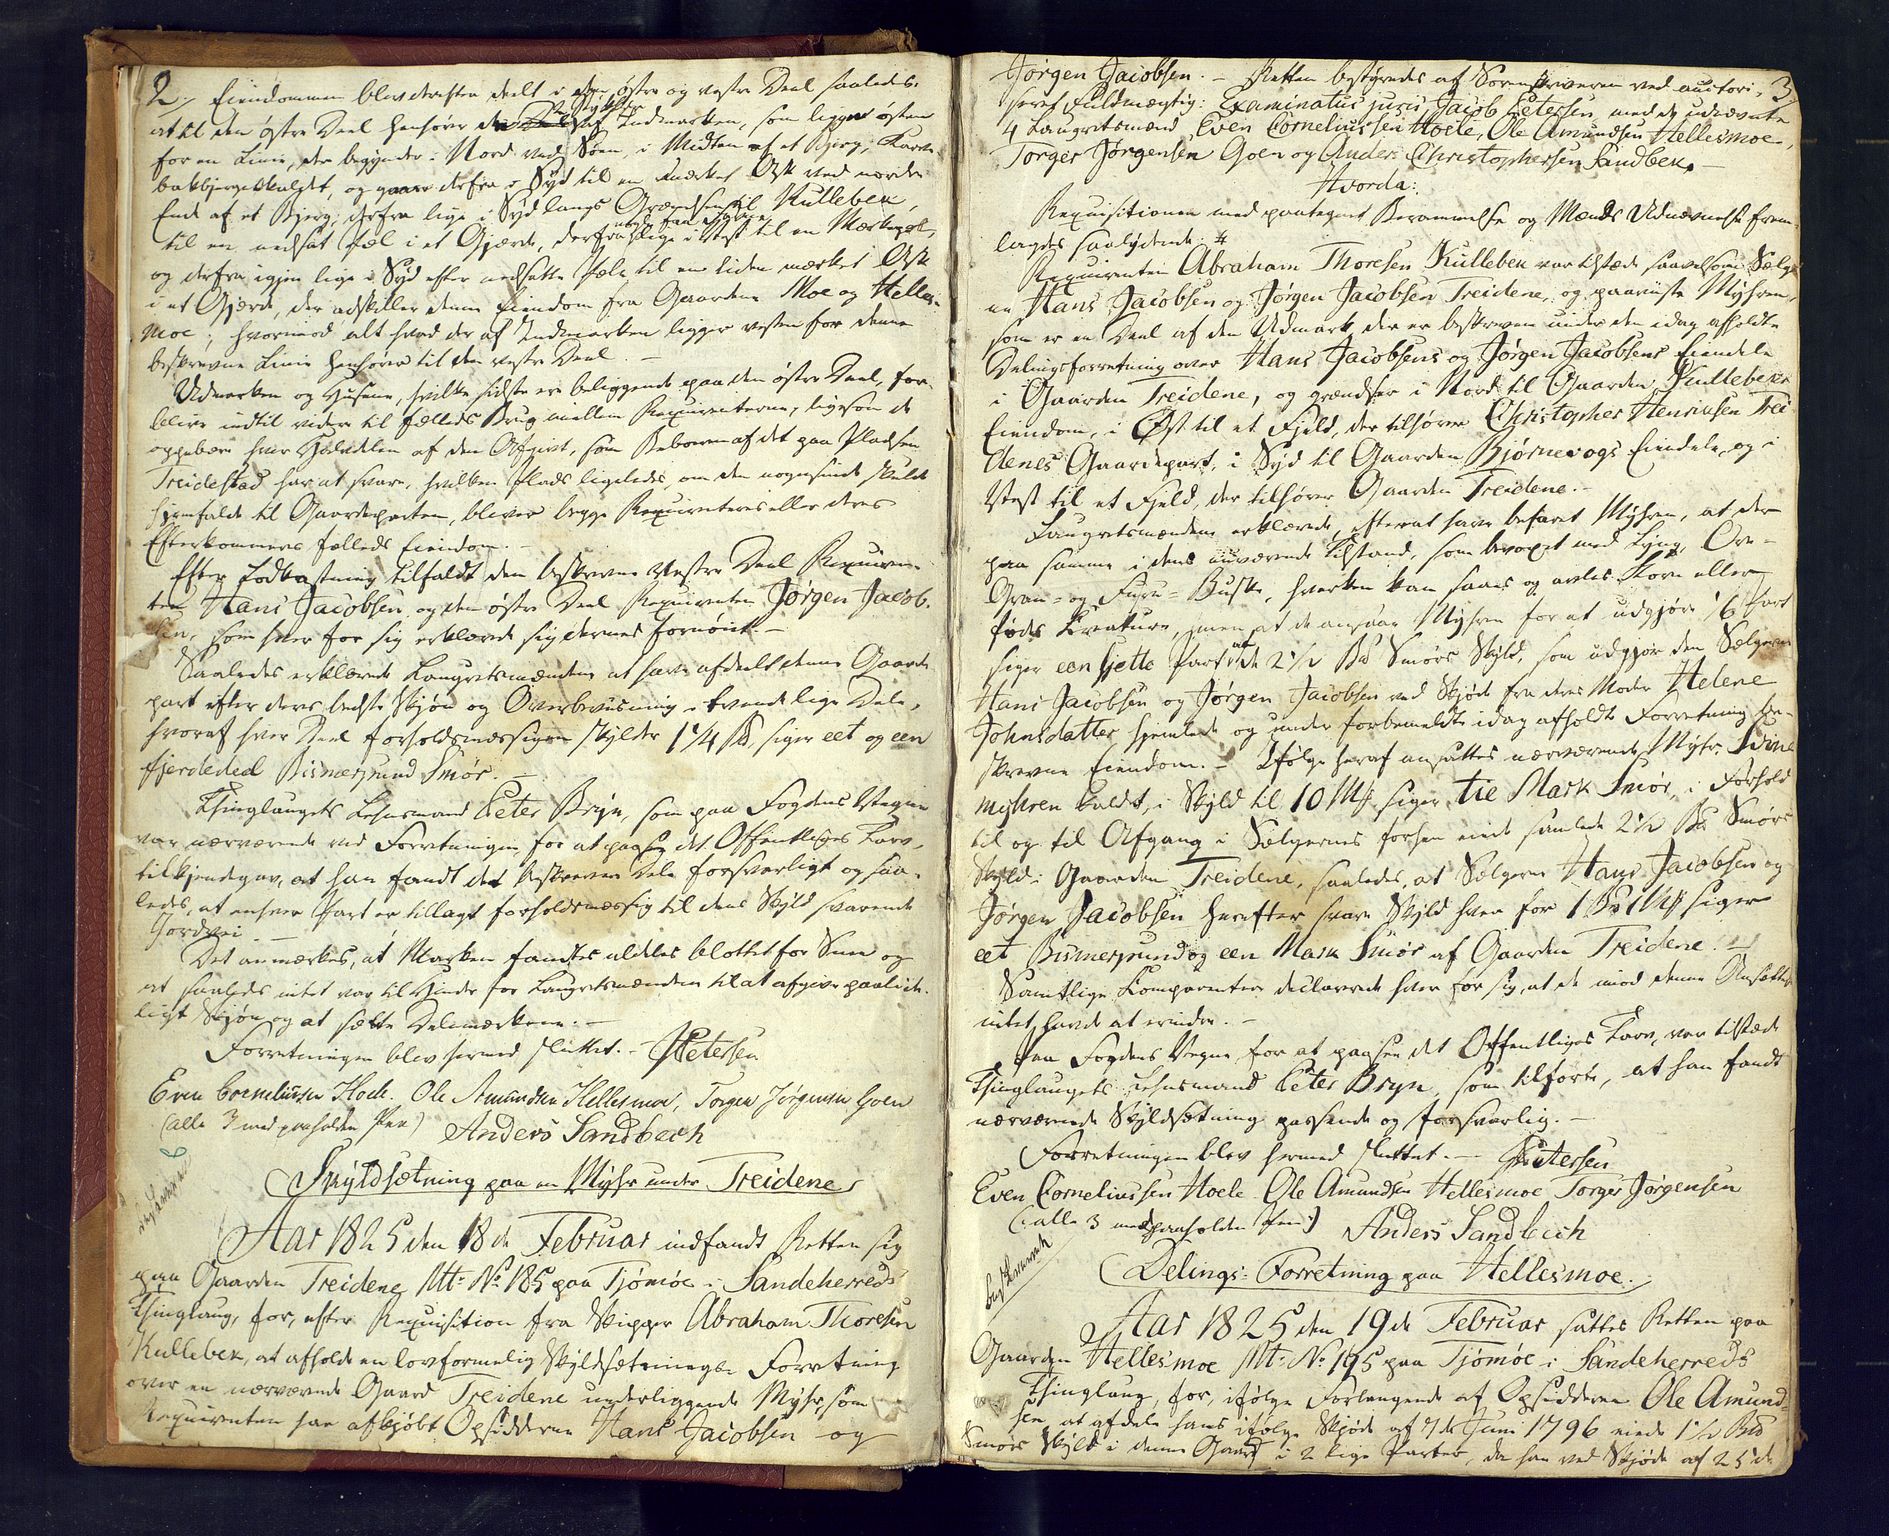 2,
Eiendommen blev derefter deelt i den østre og vestre Deel saaledes,
at til den østre Deel henhører det Stykke af Indmarken, som ligger østen
for en Linie, der begynder i Nord ved Søen, i Midten af et Bjerg,
og gaaer derfra i Syd til en mærket Ask ved nordre
Ende af et Bjerg, derfra lige i Syd langs Grændsen til Kullebek,
til en nedsat Pæl i et Gjærde, derfra lige i Vest til en Mærkepæl,
og derfra igjen lige i Syd efter nedsatte Pæle til en liden mærket Ask
i et Gjærde, der adskiller denne Eiendom fra Gaardene Moe og Helles-
moe; hvorimod alt hvad der af Indmarken ligger vesten for denne
beskrevne Linie henhører til den vestre Deel. –
Udmarken og Husene, hvilke sidste ere beliggende paa den østre Deel, for-
blive indtil videre til fælleds Brug mellem Requirenterne, ligesom de
oppebære hver Halvdelen af den Afgivt, som Beboeren af det paa Pladsen
Treidestad har at svare, hvilken Plads ligeledes, om den nogensinde skulde
hjemfalde til Gaardeparten, bliver begge Requirenters eller deres
Efterkommeres fælleds Eiendom. –
Efter Lodkastning tilfaldt den beskrevne vestre Deel Requiren-
ten Hans Jacobsen og den østre Deel Requirenten Jørgen Jacob-
sen, som hver for sig erklærede sig dermed fornøiet. –
Saaledes erklærede Laugrettsmændene at have afdeelt denne Gaarde-
part efter deres bedste Skjøn og Overbeviisning i tvende lige Dele,
hvoraf hver Deel forholdsmæssigen skylder 1 1/4 Bd, siger eet og een
fjerdedeel Bismerpund Smør. –
Thinglaugets Lehnsmand Peter Bryn, som paa Fogdens Vegne
var nærværende ved Forretningen for at paasee det Offentliges Tarv,
tilkjendegav, at han fandt det beskrevne Dele forsvarligt og saa-
ledes, at enhver Part er tillagt forholdsmæssig til dens Skyld svarende
Jordvei. –
Det anmærkes, at Marken fandtes aldeles blottet for Snee og
at saaledes intet var til Hinder for Laugrettsmændene til at afgive paalide-
ligt Skjøn og at sætte Delemærkerne. –
Forretningen blev hermed sluttet. – JPetersen
Even Corneliussen Hoele. Ole Amundsen Hellesmoe, Torger Jørgensen Goen
(alle 3 med paaholden Pen) Anders Sandbech
Skyldsætning paa en Myhr under Treidene
Aar 1825 den 18de Februar indfandt Retten sig
paa Gaarden Treidene Mt: No 185 paa Tjømøe i Sandeherreds
Thinglaug, for, efter Requisition fra Skipper Abraham Thoresen
Kullebek, at afholde en lovformelig Skyldsætnings Forretning
over en nærværende Gaard Treidene underliggende Myhr, som
Requirenten har afkjøbt Opsidderne Hans Jacobsen og
3
Jørgen Jacobsen. – Retten bestyredes af Sorenskriveren ved autori-
seret Fuldmægtig: Examinatus juris Jacob Petersen med de udnævnte
4 Laugretsmænd Even Corneliussen Hoele, Ole Amundsen Hellesmoe,
Torger Jørgensen Goen og Anders Christophersen Sandbek. –
Hvorda:
Requisitionen med paategnet Berammelse og Mænds Udnævnelse frem-
lagdes saalydende: #
Requirenten Abraham Thoresen Kullebek var tilstæde saavelsom Sælger-
ne Hans Jacobsen og Jørgen Jacobsen Treidene, og paaviiste Myhren,
som er en Deel af den Udmark, der er beskreven under den idag afholdte
Delingsforretning over Hans Jacobsens og Jørgen Jacobsens Eiendele
i Gaarden Treidene, og grændser i Nord til Gaarden Kullebeks
Eiendom, i Øst til et Fjeld, der tilhører Christopher Henriksen Trei-
denes Gaardepart, i Syd til Gaarden Bjørnevogs Eiendele, og i
Vest til et Fjeld, der tilhører Gaarden Treidene. –
Laugretsmændene erklærede, efterat have befaret Myhren, at der
paa samme i dens nuværende Tilstand, som bevoxet med Lyng, Ore-
Gran- og Furu-Buske, hverken kan saaes og avles Korn eller
fødes Kreature, men at de ansaae Myhren for at udgjøre 1/6 Part
siger een sjette Part af de 2 1/2 Bd Smørs Skyld, som udgjør den Sælgerne
Hans Jacobsen og Jørgen Jacobsen ved Skjøde fra deres Moder Helene
Johnsdatter hjemlede og under forbemeldte idag afholdte Forretning be-
skrevne Eiendom. – Ifølge heraf ansattes nærværende Myhr,
myhren kaldet, i Skyld til 10 Mk siger tie Mark Smør, i Forhold
til og til Afgang i Sælgernes forhen eiede samlede 2 1/2 Bd Smørs
Skyld i Gaarden Treidene, saaledes, at Sælgerne Hans Jacobsen og
Jørgen Jacobsen herefter svare Skyld hver for 1 Bd 1 Mk siger
eet Bismerpund og een Mark Smør af Gaarden Treidene. –
Samtlige Comparenter declarerede hver for sig, at de imod denne Ansættelse
intet havde at erindre. –
Paa Fogdens Vegne for at paasee det Offentliges Tarv, var tilstæde
Thinglaugets Lehnsmand Peter Bryn, som tilførte, at han fandt
nærværende Skyldsætning passende og forsvarlig. –
Forretningen blev hermed sluttet. – JPetersen
Even Corneliussen Hoele Ole Amundsen Hellesmoe Torger Jørgensen
(: alle 3 med paaholden Pen :) Anders Sandbech
Delings-Forretning paa Hellesmoe.
Aar 1825 den 19de Februar sattes Retten paa
Gaarden Hellesmoe Mt: No 195 paa Tjømøe i Sandeherreds
Thinglaug, for, ifølge Forlangende af Opsidderen Ole Amund-
sen, at afdele hans ifølge Skjøde af 7de Juni 1796 eiede 1 1/2 Bd
Smørs Skyld i denne Gaard i 2 lige Parter, da han ved Skjøde af 25de